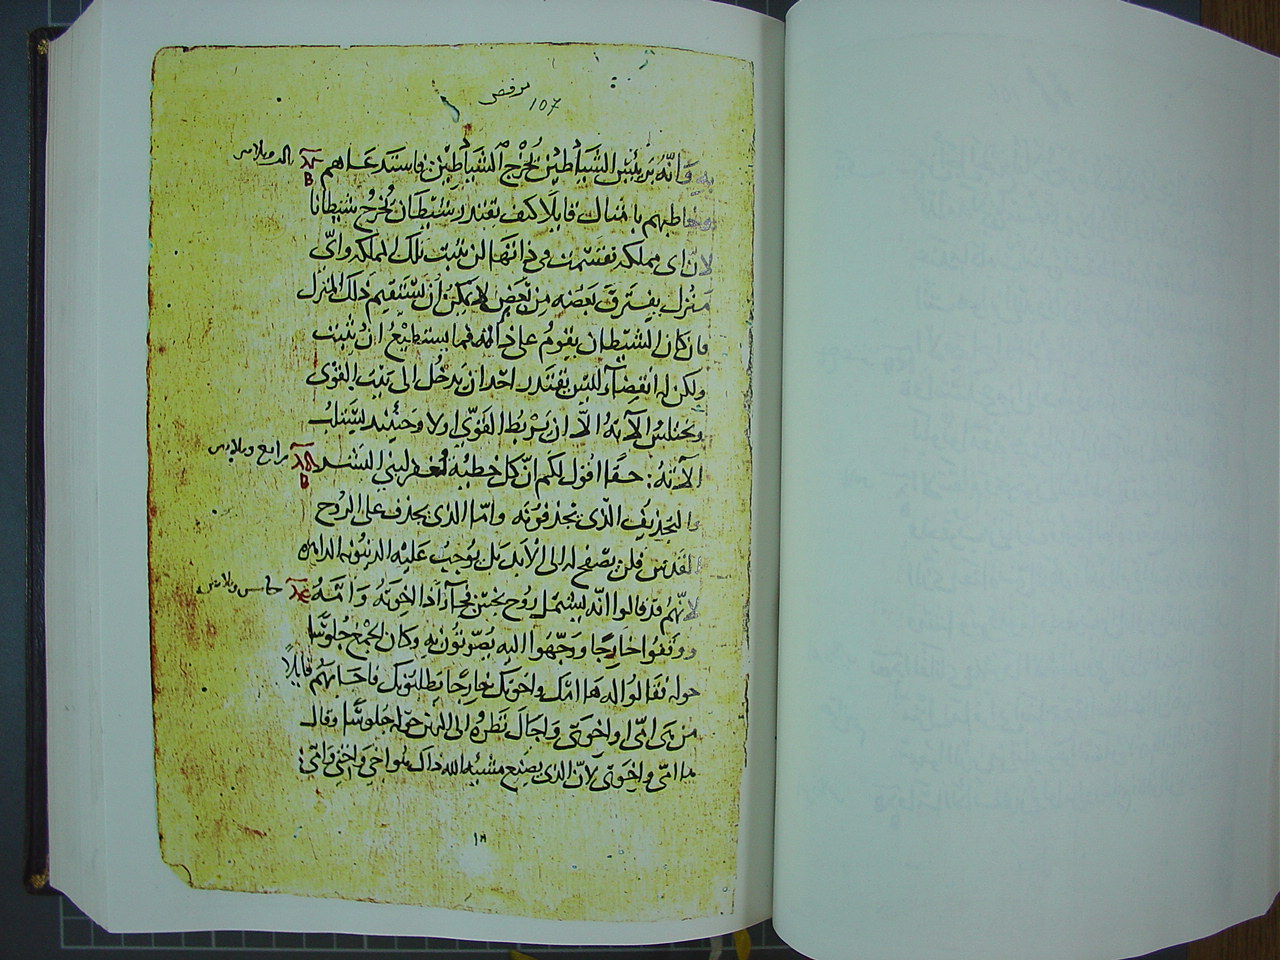 مرقص
107
به وَانّهُ بَرئيسِ الشَّيَاطِيْن يُخْرْج الشَيَاطِيْن: فاستدعَاهم
وخاطبهم بامثال قايلًا كيف يقتدر شيْطان يُخرجُ شيطانًا
لانّ اى مملكه تقسّمت في ذاتها لن تثبت تلك المملكه واىّ
مَنزل يفترق بَعضه مِن بَعض لا يمكِن ان يستقيم ذلك المنزل
فان كان الشيْطان يقومُ على ذاته فما يستطيْعُ ان يثبت
ولكن له انقِضآء ليس يقتدر احدان يَدخُل الى بيت القوى
ويختلس الآنيهُ الاّ ان يَرْبط القوّي اولا وَحينئذ يسْتلبُ
الآنيهُ: حقًا اقول لكم انّ كل خطيّه تُغفر لبني البشر
رابع وثلاثين
والتجديف الّذى يجذفونه وامّا الذى يجذف على الروح
القدس فلن يصْفح له الى الابد بَل يوجبُ عَليْه الدينونه الدايمه
لانّهم قد قالوا انّه يشتمل روح نجسْ فجآ اذا اخوتهُ وَامّهُ
خامس وثلاثين
ووقفوا خارجًا ووَجّهوا اليه يصَوّتُون به وكان الجمْع جُلوسًا
حوله فقالوا له ها امّك واخوتك خارجًا يطلبونك فاجابهُم قايلاً
من هى امّى او اخوتى واجَال نظرهُ الى الذين حوله جلوسًا وقال
ها امّى واخوتى لانّ الذى يصنع مشيّه الله ذاك هُوا اخى واختى وَامّى: